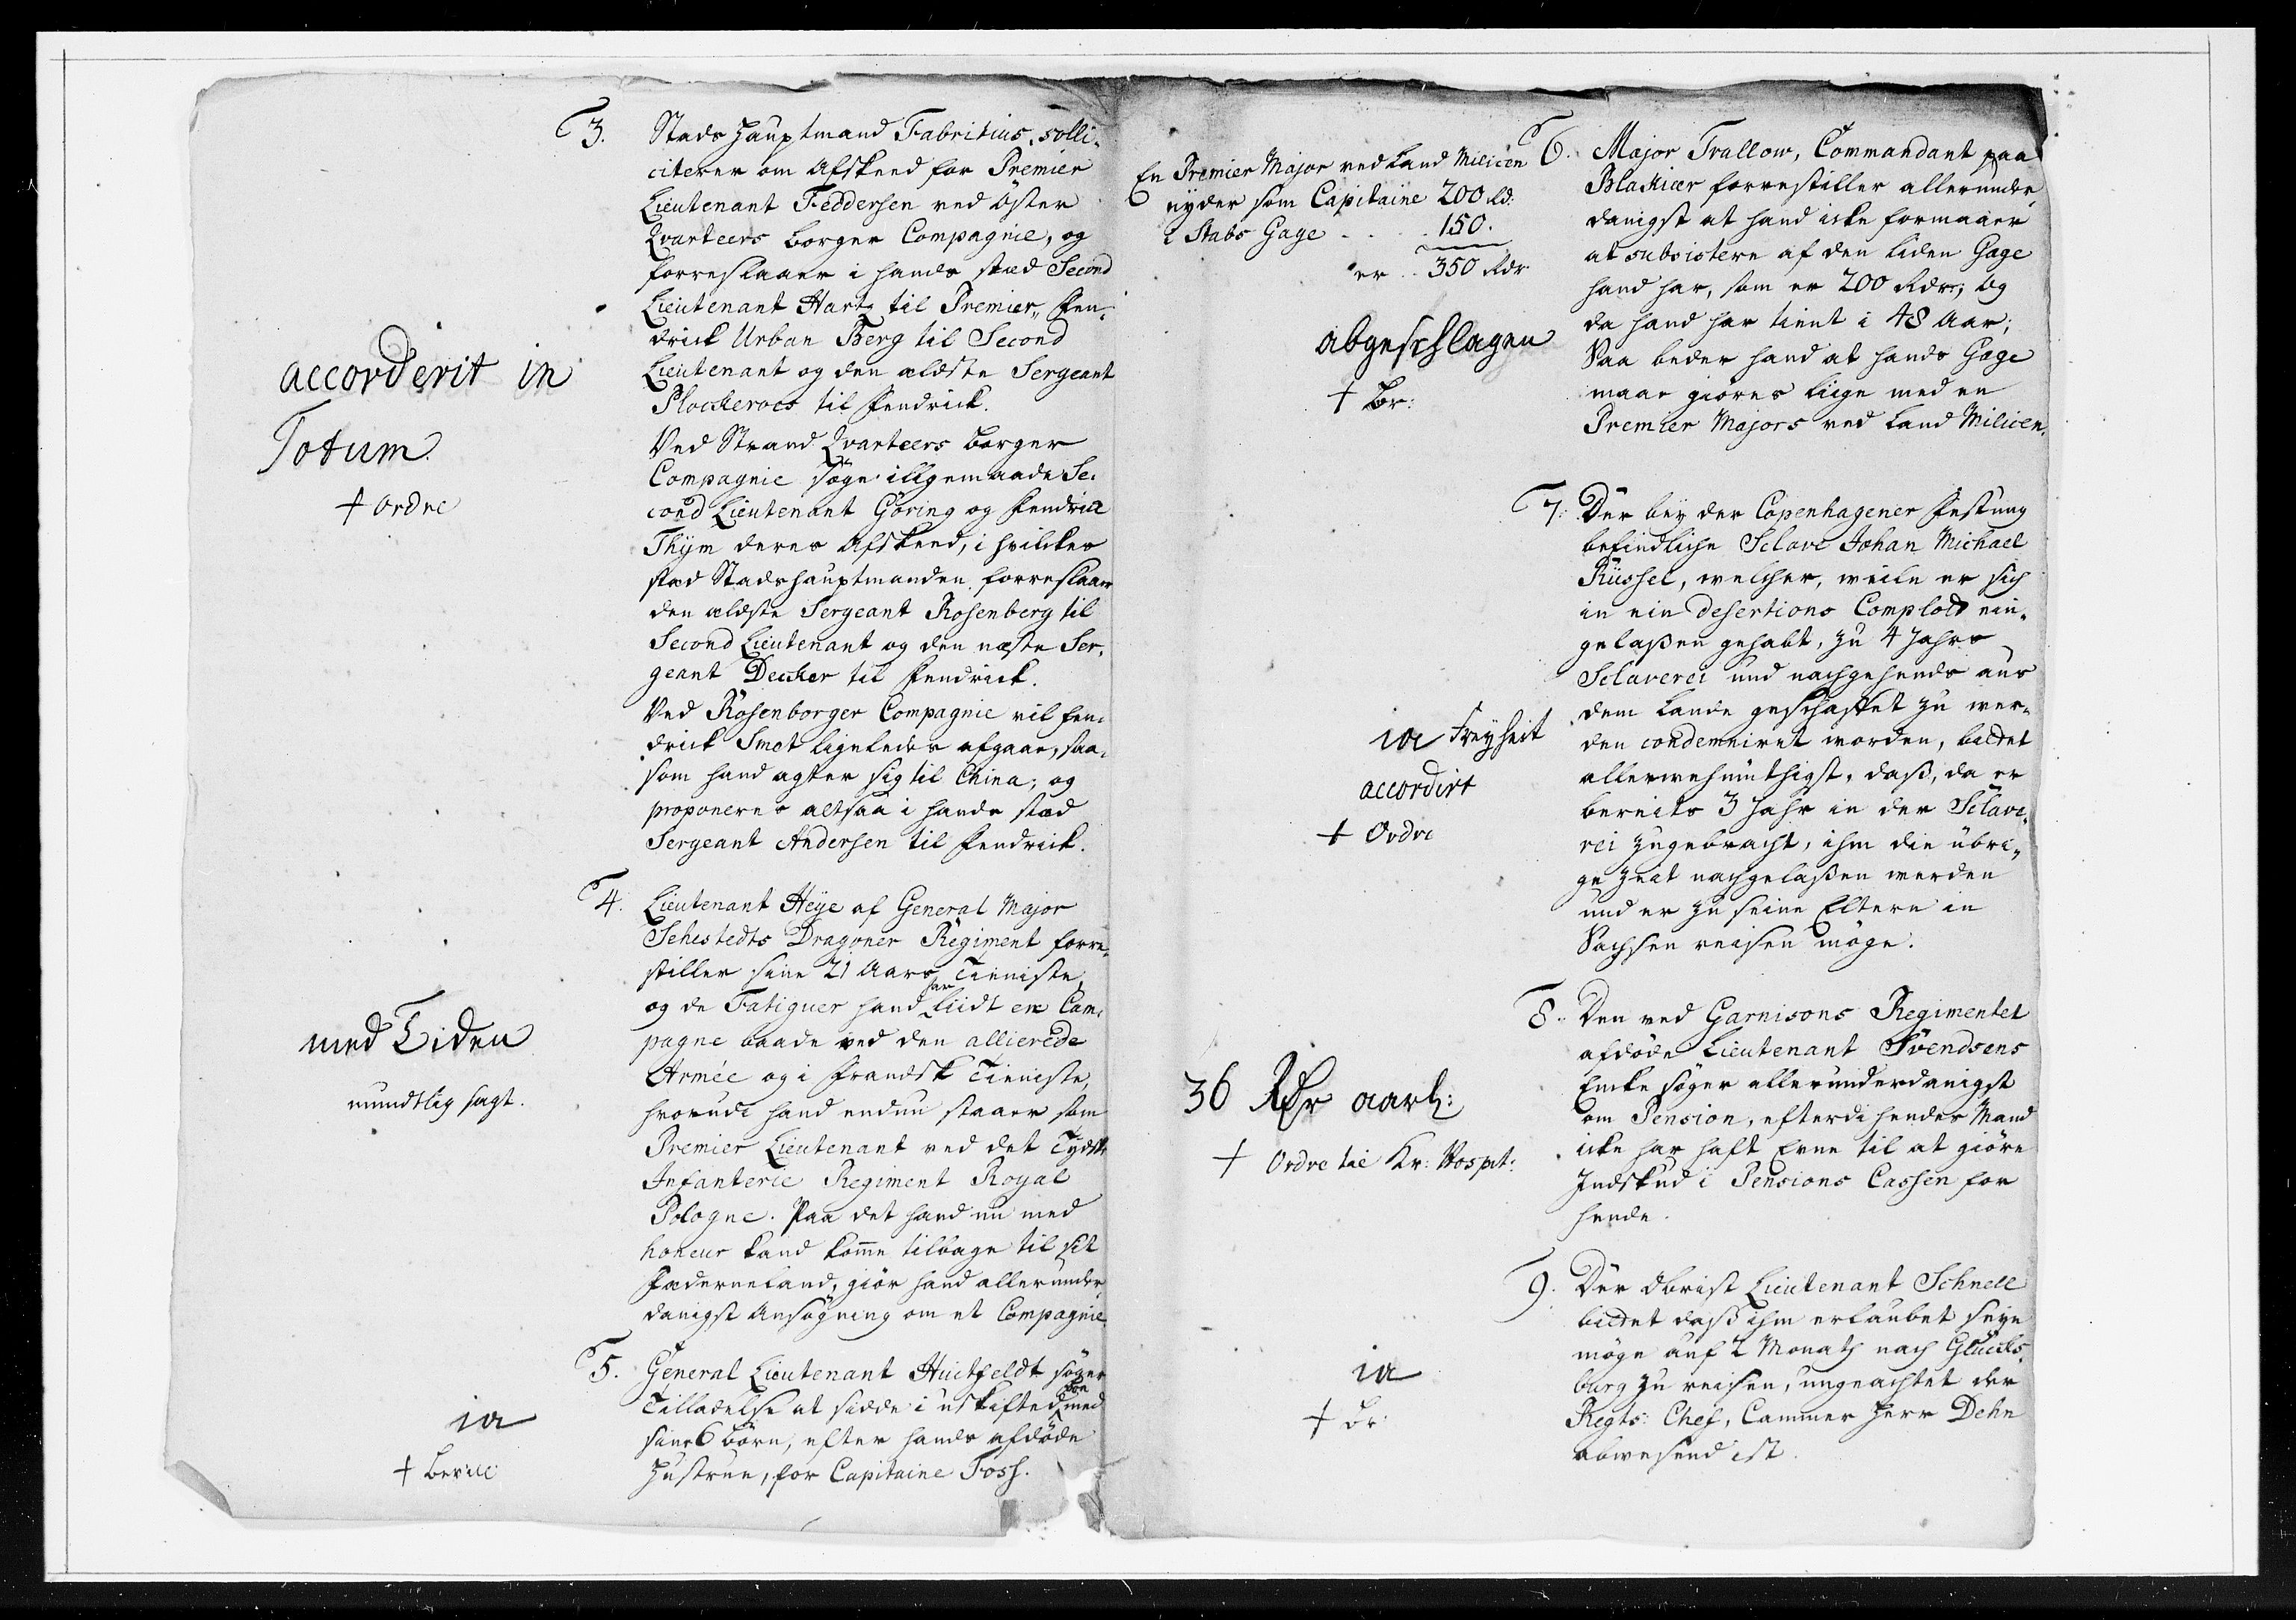 3. Stads Hauptmand Fabritius, solli-
citerer om Afskeed for Premier
Lieutenant Feddersen ved Öster
Qvarteers borger Compagnie, og
forreslaaer i hands stæd Second
Lieutenant Hartz til Premier, Fen-
drick Urban Berg til Second
Lieutenant og den ældste Sergeant
Plockeroes til Fendrick.
Ved Strand Qvarteers borger
Compagnie söge illigemaade Se-
cond Lieutenant Göring og Fendrick
Thÿm deres Afskeed, i hvilckes
stæd Stadshauptmanden forreslaaer
den ældste Sergeant Rosenberg til
Second Lieutenant og den næste Ser-
geant Decker til Fendrick.
Ved Rosenborger Compagnie vil Fen-
drick Smet ligeledes afgaae, saa-
som hand agter sig til China, og
proponeres altsaa i hands stæd
Sergeant Andersen til Fendrick.
accorderit in
Totum.
† Ordre
4. Lieutenant Heÿe af General Major
Sehestedts Dragoner Regiment forre-
stiller sine 21 Aars Tieniste,
og de Fatiguer hand har Liidt en Cam-
pagne baade ved den allierede
Armée og i Frandsk Tieniste,
hvorudi hand endnu staaer som
Premier Lieutenant ved det Tydsk
Infanterie Regiment Royal
Pologne. Paa det hand nu med
honeur kand komme tilbage til sit
Fæderneland, giör hand allerunder-
danigst Ansögning om et Compagnie.
med Tiden
mundtlig sagt.
5. General Lieutenant Huitfeldt söger
Tilladelse at sidde i uskifted boe med
sine 6 börn, efter hands afdöde
Hustrue, for Capitaine Foss.
ia
† bevill:
En Premier Major ved Land Milicen
nyder som Capitaine 200 Rd:
i Stabs Gage . . . 150.
er . . 350 Rdr
6. Major Trallow, Commandant paa
Blakiær forrestiller allerunder-
danigst at hand icke formaaer
at subsistere af den liden Gage
hand har, som er 200 Rdr, og
da hand har tient i 48 Aar;
Saa beder hand at hands Gage
maae giöres liige med en
Premier Majors ved Land Milicen.
abgeschlagen
† Br:
7. Der bey der Copenhagener Festung
befindliche Sclave Johan Michael
Rüssel, welcher, weile er sich
in ein desertions Complott ein-
gelaßen gehabt, zu 4 Jahrs
Sclaverei und nachgehends aus
dem Lande geschaffet zu wer-
den condemniret worden, bittet
allerwehmüthigst, daß, da er
bereits 3 Jahr in der Sclave-
rei zugebracht, ihm die übri-
ge Zeit nachgelaßen werden
und er zu seine Eltern in
Sachsen reisen möge.
ia Freyheit
accordirt
† Ordre
8. Den ved Garnisons Regimentet
afdöde Lieutenant Svendsens
Encke söger allerunderdanigst
om Pension, efterdi hendes Mand
icke har haft Evne til at giöre
Indskud i Pensions Cassen for
hende.
36 Rdr aarl:
† Ordre til Kr: Hospit:
9. Der Obrist Lieutenant Schnell
bittet daß ihm erlaubet seyn
möge auf 2 Monath nach Glücks-
burg zu reisen, ungeachtet der
Regts: Chef, Cammer Herr Dehn
abwesend ist.
ia
† Br: